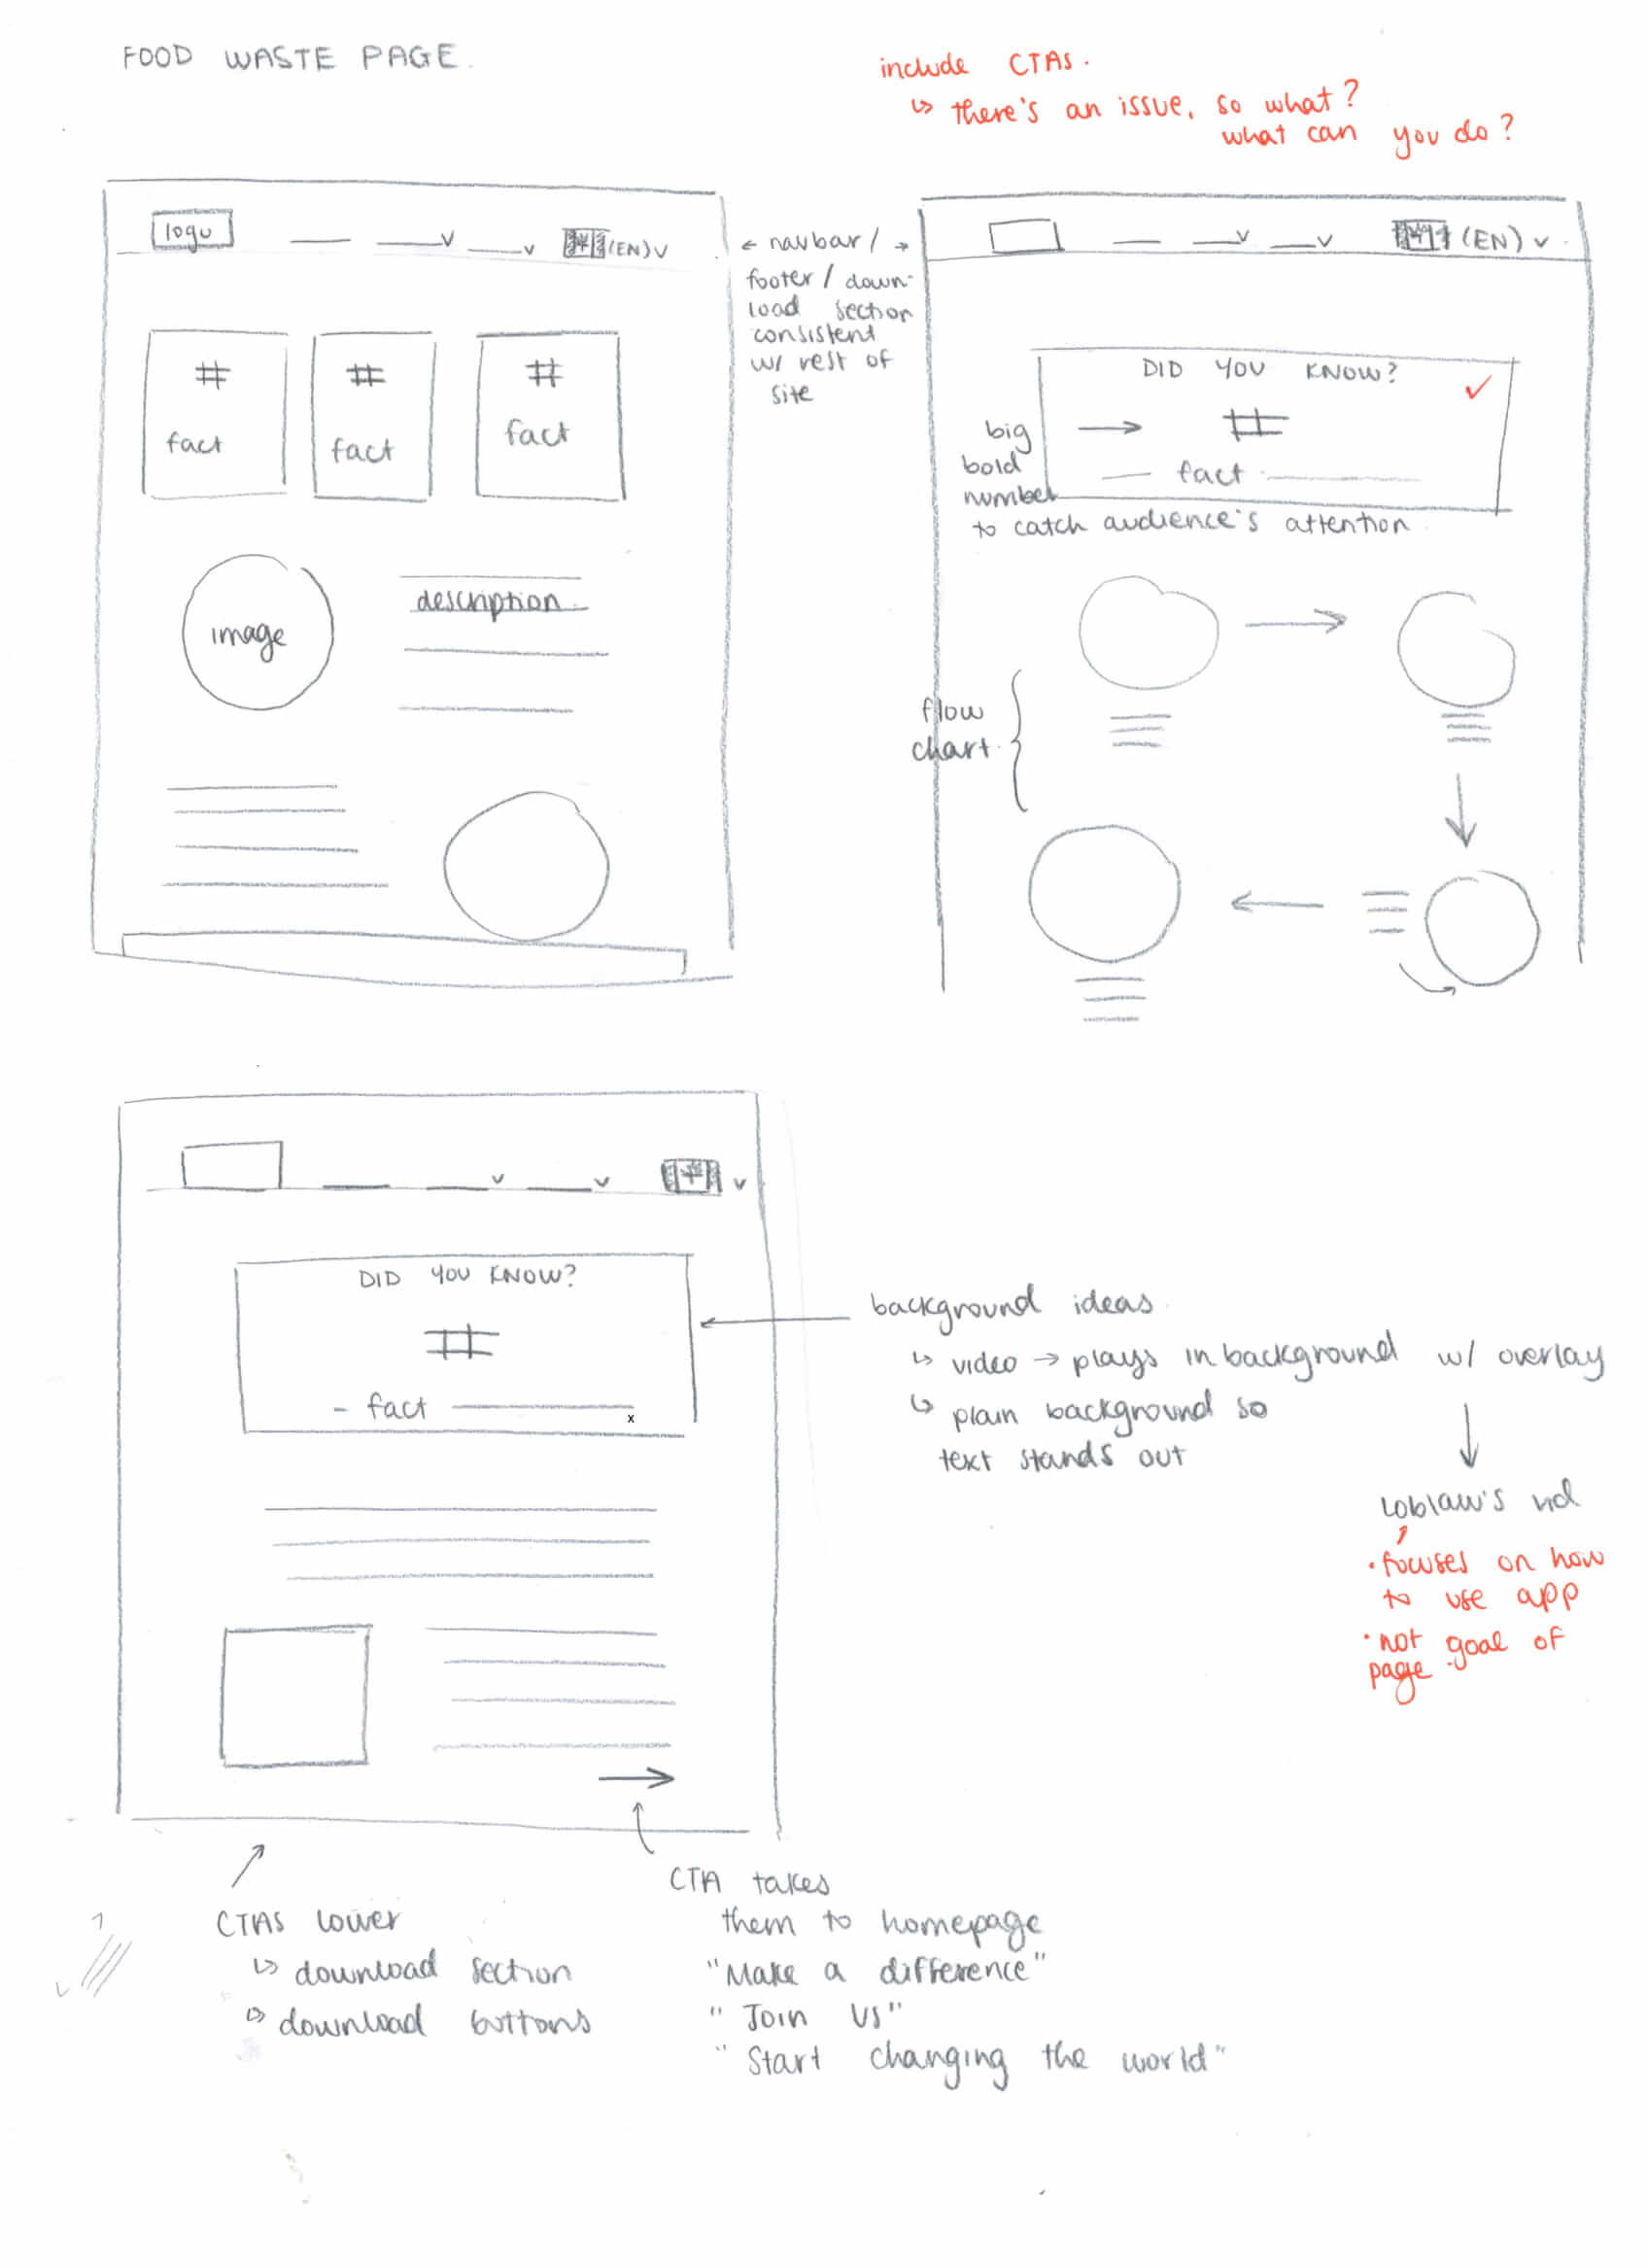 FOOD WASTE PAGE.
include CTAs.
↳ there's an issue, so what?
what can you do?
logo
(EN) v
← navbar / →
footer / down-
load section
consistent
w/ rest of
site
#
fact
#
fact
#
fact
image
description
(EN) v
DID YOU KNOW?
✓
#
fact
big
bold
number
to catch audience's attention
flow
chart
DID YOU KNOW?
#
- fact
x
background ideas
↳ video → plays in background w/ overlay
↳ plain background so
text stands out
Loblaw's vid
• focuses on how
to use app
• not goal of
page
CTAs lower
↳ download section
↳ download buttons
CTA takes
them to homepage
"Make a difference"
"Join us"
"Start changing the world"